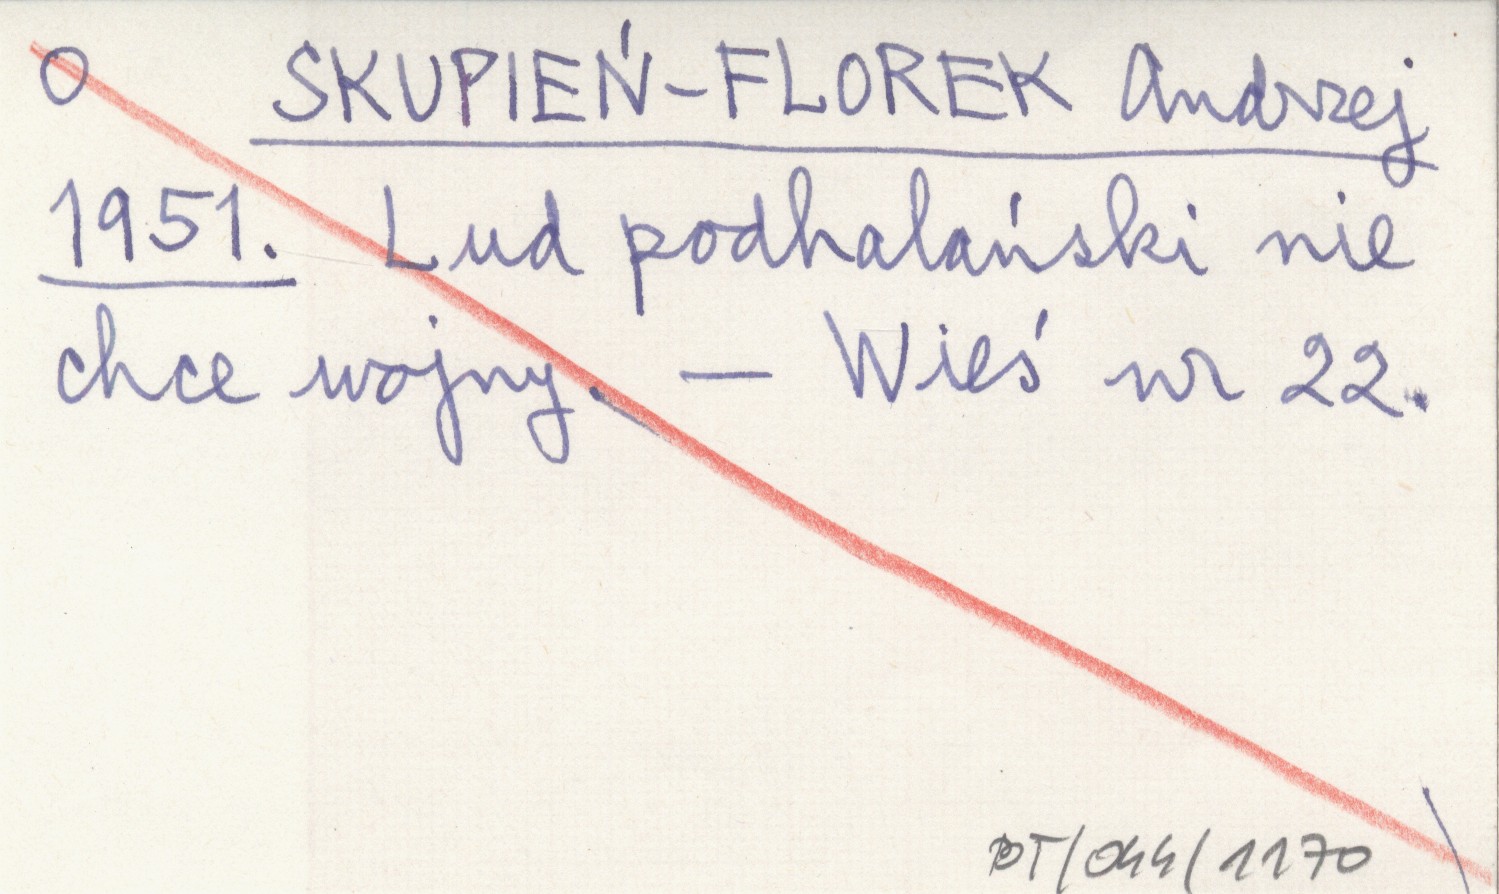 O SKUPIEŃ-FLOREK Andrzej
1951. Lud podhalański nie
chce wojny. — Wieś nr 22.
PT/044/1170